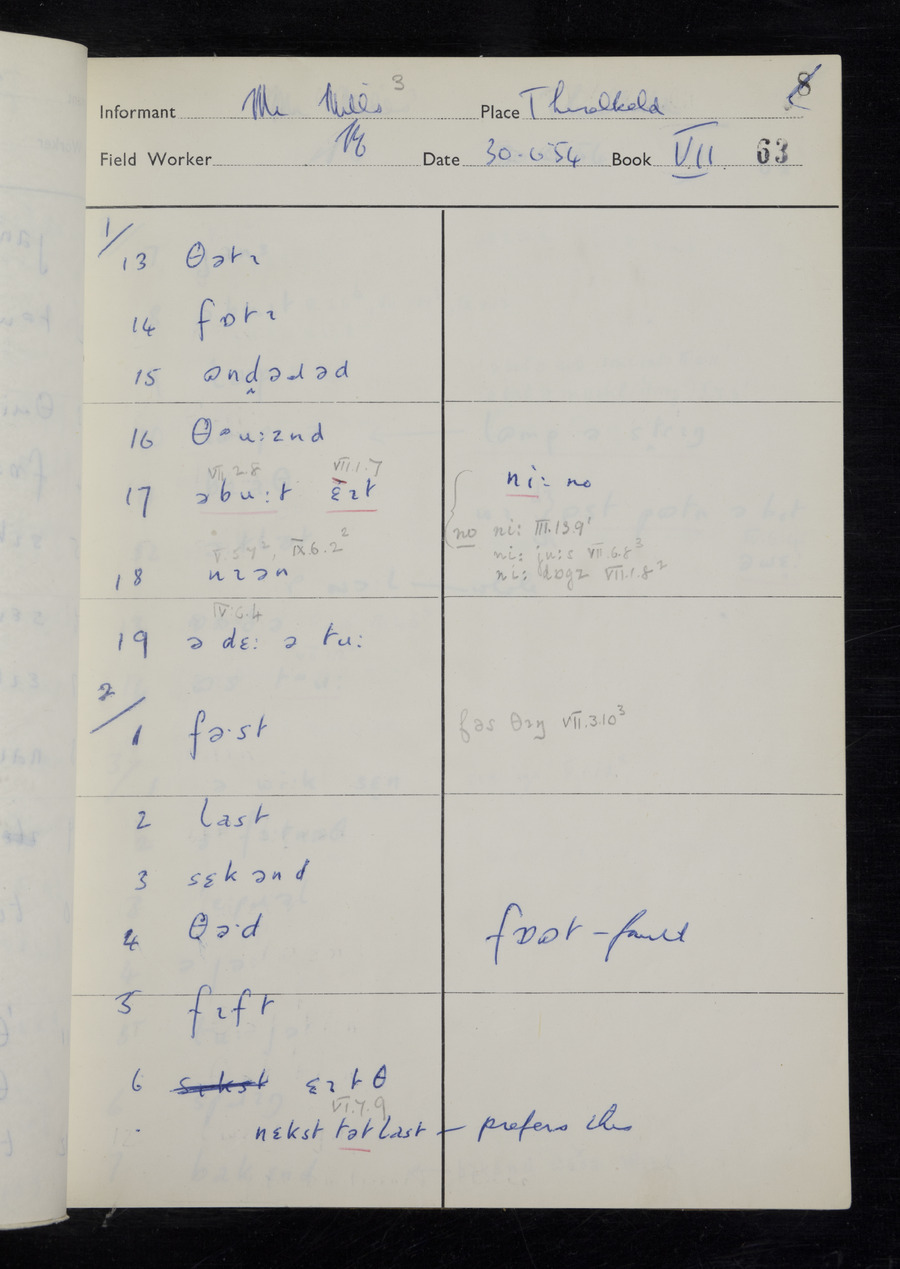 3 8
Informant Mr Mills Place Threlkeld
Field Worker Date 30.6.54 Book VII 63
1/
13 θəːtɪ
14 fɒtɪ
15 ʊndəɹəd
16 θəuːznd
VII.2.8 VII.1.7
17 əbuːt ɛɪt niː no
no niː III.13.9¹
V.5.4², IX.6.2² niː juːs VII.6.8³
18 nɪən niː dɒgz VII.1.8²
IV.6.4
19 ə dɛː ə tuː
2/
1 fəˑst fəs θɪŋ VII.3.10³
2 last
3 sɛkənd
4 θəˑd fɒʊt – fault
5 fɪft
6 sɪkst ɛɪtθ
VI.7.9
nɛkst tət last – prefers this